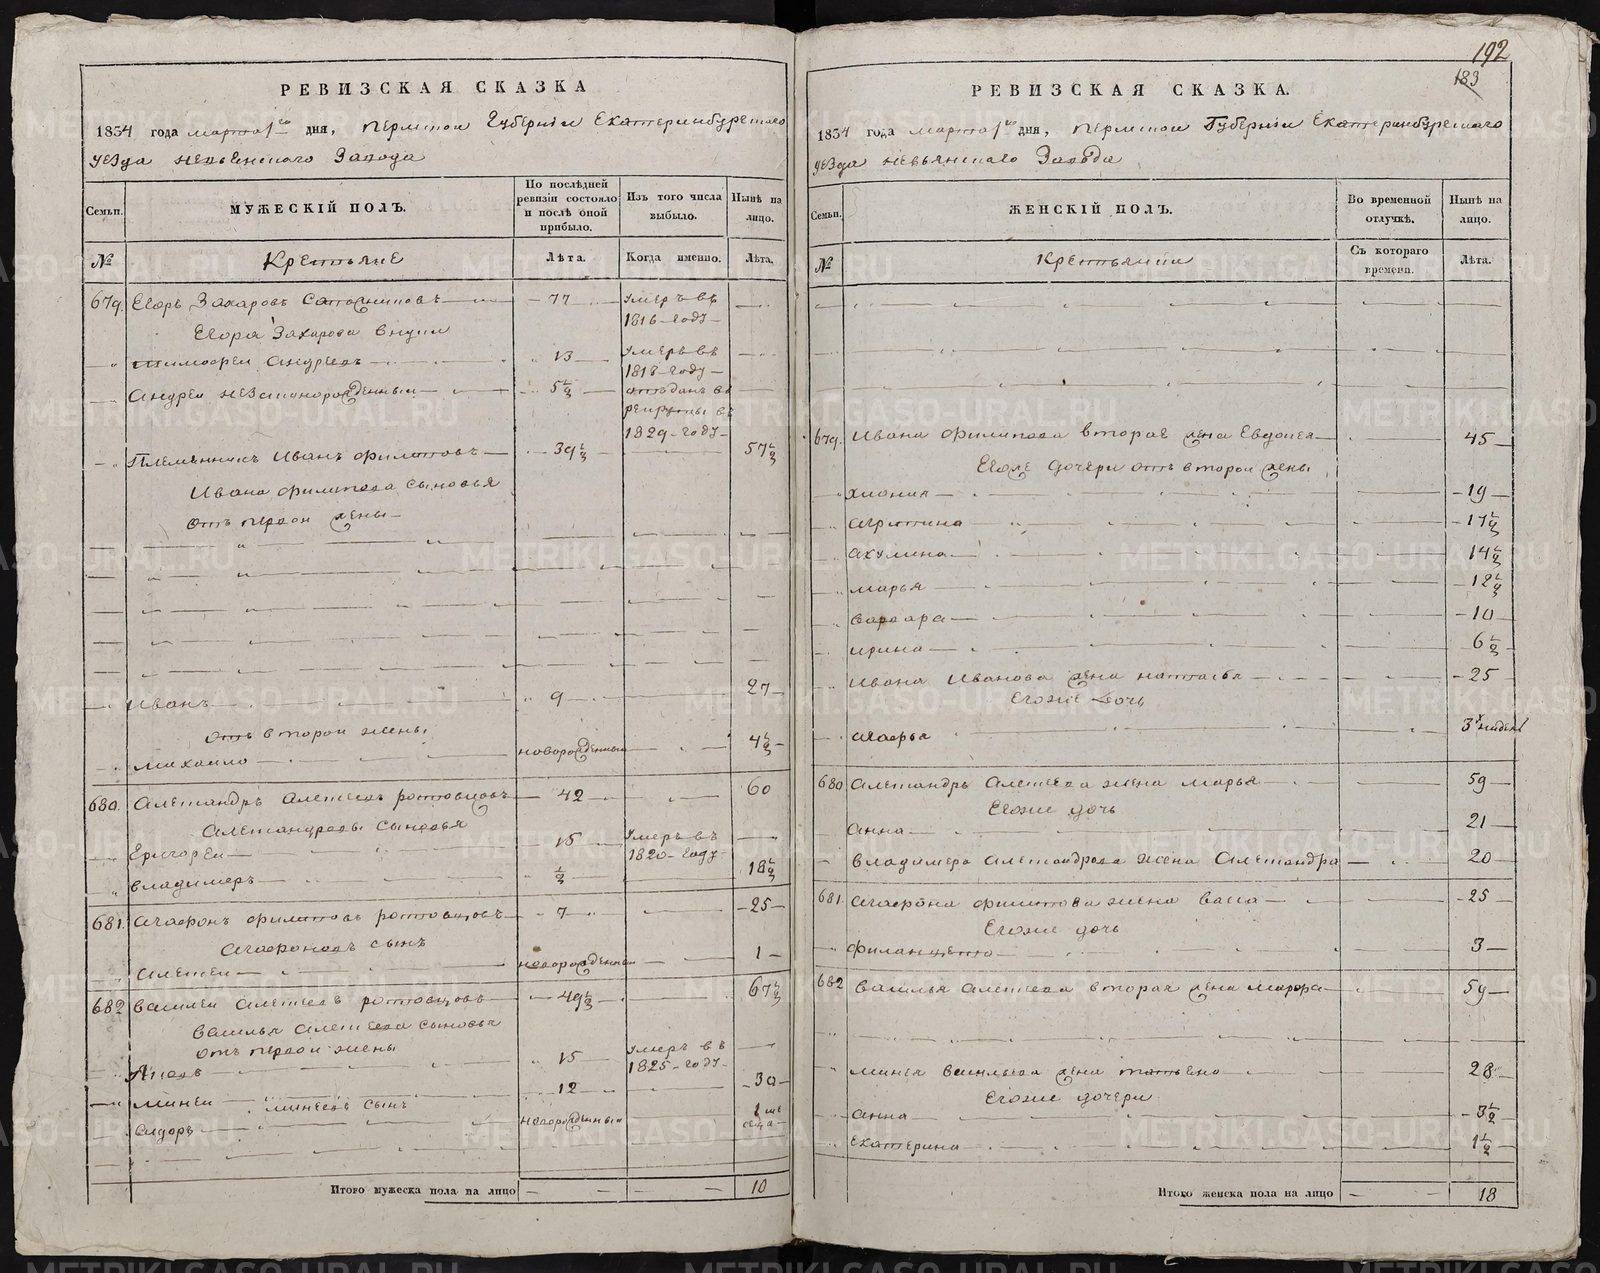 192
183
РЕВИЗСКАЯ СКАЗКА
1834 года марта 1го дня, Пермской Губернiи Екатеринбургского
уезда невьянского Завода
Семьи.
МУЖЕСКIЙ ПОЛЪ.
По послѣдней ревизiи состояло и послѣ оной прибыло.
Изъ того числа выбыло.
Нынѣ на лицо.
№
Крестьяне
Лѣта.
Когда именно.
Лѣта.
679. Егоръ Захаровъ 77 Умеръ въ
1816 году
Егора Захарова внуки
Тимофеи Андреевъ 13 Умеръ въ
1818 году
Андреи незаконорожденныи 5½ отъданъ въ
рекруты въ
1829 году
Племянникъ Иванъ Филиповъ 39½ 57½
Ивана Филипова сыновья
отъ первои жены
Иванъ 9 27
отъ второи жены
Михаило новорожденныи 4½
680. Александръ Алексеевъ ростовцовъ 42 60
Александровы сыновья
Григореи 15 Умеръ въ
1820 году
Владимеръ ½ 18½
681. Агафонъ Филиповъ ростовцовъ 7 25
Агафоновъ сынъ
Алексеи новорожденныи 1
682 Василеи Алексеевъ ростовцовъ 49½ 67½
Василья Алексеева сыновья
отъ первои жены
Яковъ 15 Умеръ въ
1825 году
Минеи 12 30
Минеевъ сынъ
Сидоръ новорожденныи 1 месеца
Итого мужеска пола на лицо 10
РЕВИЗСКАЯ СКАЗКА.
1834 года марта 1го дня, Пермской Губернiи Екатеринбургского
уезда невьянского Завода
Семьи.
ЖЕНСКIЙ ПОЛЪ.
Во временной отлучкѣ.
Нынѣ на лицо.
№
Крестьянки
Съ котораго времени.
Лѣта.
679. Ивана Филипова вторая жена Евдокея 45
Еголе дочери отъ второи жены
Хиония 19
Агрипина 17½
Акулина 14½
Марья 12½
Варвара 10
Ирина 6½
Ивана Иванова жена Наталья 25
Егоже дочь
Агафья 3х недель
680 Александръ Алексеева жена Марья 59
Егоже дочь
Анна 21
Владимера Александрова жена Александра 20
681. Агафона Филипова жена Васса 25
Егоже дочь
Филанцета 3
682 Василья Алексеева вторая жена Мавра 59
Минея Васильева жена Татьяна 28
Егоже дочери
Анна 3½
Екатерина 1½
Итого женска пола на лицо 18
METRIKI.GASO-URAL.RU